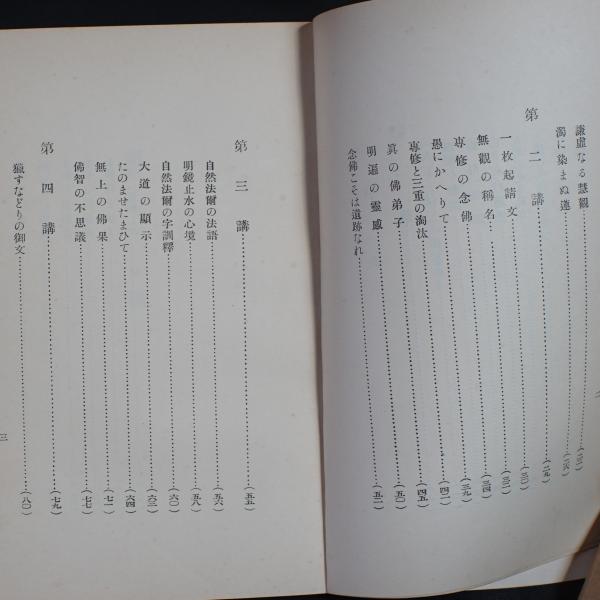 謙虚なる慧觀
濁に染まぬ蓮
第二講
一枚起請文
無觀の稱名
專修の念佛
愚にかへりて
專修と三重の淘汰
眞の佛弟子
明遍の靈感
念佛こそは遺跡なれ
第三講……(五五)
自然法爾の法語……(五六)
明鏡止水の心境……(五八)
自然法爾の字訓釋……(六〇)
大道の顯示……(六三)
たのませたまひて……(六四)
無上の佛果……(七一)
佛智の不思議……(七七)
第四講……(七九)
獵すなどりの御文……(八〇)
三